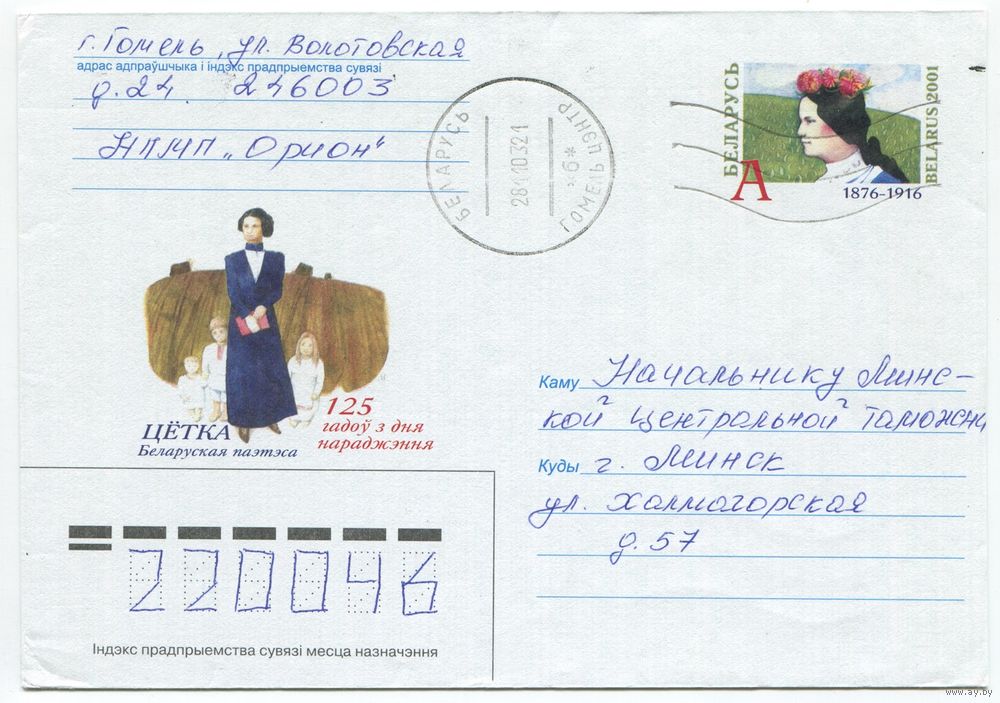 г. Гомель, ул. Волотовская
адрас адпраўшчыка і індэкс прадпрыемства сувязі
д. 24. 246003
НПМП „Орион"
БЕЛАРУСЬ
BELARUS 2001
А
1876-1916
БЕЛАРУСЬ
ГОМЕЛЬ ЦЭНТР
*б*
ЦЁТКА
Беларуская паэтэса
125
гадоў з дня
нараджэння
Каму Начальнику Минс-
кой центральной таможни
Куды г. Минск
ул. Халмогорская
д. 57
220046
Індэкс прадпрыемства сувязі месца назначэння
www.ay.by